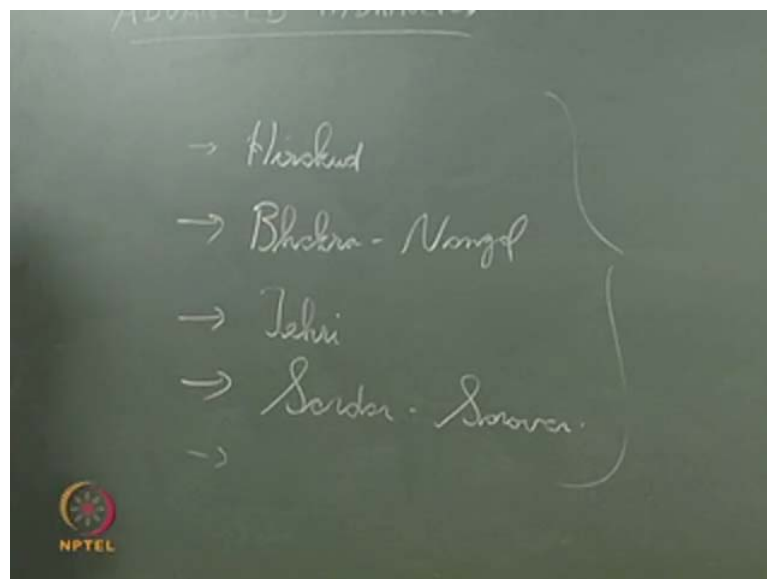 ADVANCED HYDRAULICS
→ Hirakud
→ Bhakra - Nangal
→ Tehri
→ Sardar - Sarovar.
→
NPTEL